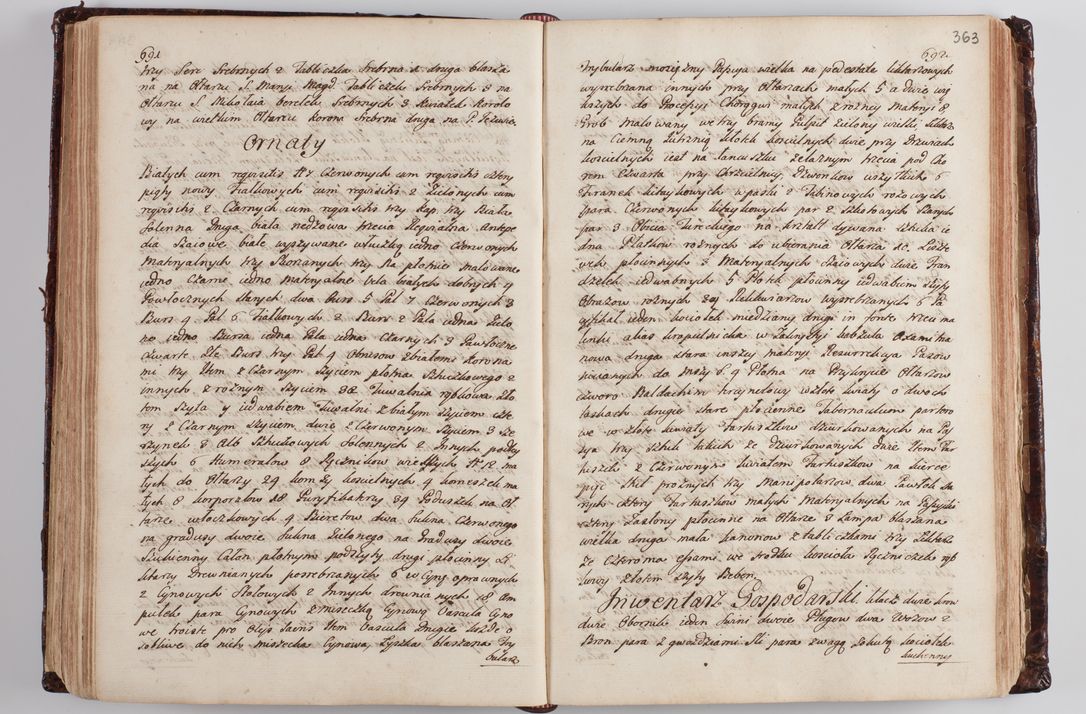 691
trzy Serc Srebrnych 2 Tabliczka Srebrna 1 druga blasza
na na Ołtarzu S. Maryi Magd. Tabliczek Srebrnych 3 na
Ołtarzu S. Mikołaia berełek Srebrnych 3 kwiatek Korolo
wy na wielkim Ołtarzu Korona Srebrna druga na P. Jezusie
Ornaty
Białych cum requisitis N 7 Czerwonych cum requisitis cztery
piąty nowy Fiałkowych cum requisitis 2 Zielonych cum
requisitis 2 Czarnych cum requisitis trzy Kap trzy Biała
Solenna Druga biała nedzowa trzecia Requialna Antepe
dia Szaiowe białe wyszywane włuczką iedno Czerwonych
materyalnych trzy Skorzanych trzy Na płotnie malowane
iedno Czarne iedno materyalne Vela białych dobrych 4
Powłocznych starych dwa burs 5 Pal 7 Czerwonych 3
Burs 4 Pal 6 Fiałkowych 2 Burs 2 Pala iedna Zielo
ne iedno Bursa iedna Pala iedna Czarnych 3 Pawłoczne
czwarte Złe Burs trzy Pal 4 Obrusow z białemi Korona
mi trzy Item z Czarnym Szyciem płotna Sztuczkowego 2
innych z rożnym Szyciem 32 Tuwalnia rąbkowa Zło
tem Szyta y iedwabiem Tuwalni z białym Szyciem czte
ry z Czarnym Szyciem dwie z Czerwonym Szyciem 3 Ze
szynek 8 Alb Sztuczkowych Solennych 2 Innych podley
szych 6 Humerałow 8 Ręcznikow wielkich N 12 ma
łych do Ołtarzy 24 komży kościelnych 4 komeszek ma
łych 8 korporałow 18 Puryfikaterzy 34 Poduszek na Oł
tarze włoczkowych 4 Bieretow dwa Sukna Czerwonego
na gradusy dwoie Sukna Zielonego na Gradusy dwoie
Sukienny Całun płotnym podszyty drugi płocienny Li
chtarzy Drewnianych posrebrzanych 6 w Cynę oprawnych
2 Cynowych Stołowych 2 Innych drewnianych 18 Am
pułek para Cynowych z miseczką Cynową Vascula Cyno
we troiste pro Oleis Sacris Item Vascula Drugie każde o
sobliwe do nich miseczka Cynowa Łyszka blaszana Try
bularz
363
692
Trybularz mosiężny Pasyja wielka na pedestale lichtarzowych
wysrebrzana innych przy Ołtarzach małych 5 a dwie wię
kszych do Processyi Chorągwi małych z rożney materyi 8
Grob malowany we trzy bramy Pulpit Zielony wielki,
na Ciemną Jutrznią Kłodek koscielnych dwie przy Drzwiach
koscielnych iest na łancuszku żelaznym trzecia pod Cho
rem Czwarta przy Chrzcielnicy, Dzwonkow wszystkich 6
Firanek kitaykowych w pasły 2 Tabinowych rożowych
para Czerwonych kitaykowych par 2 Szkotowych Starych
par 3 Obicia Tureckiego na kształt dywana sztuka ie
dna Płatkow rożnych do ubierania Ołtarza 20. Lasze
wek płocinnych 3 Materyalnych Szaiowych dwie Fran
dzelek iedwabnych 5 Płotek płocinny iedwabiem szyty
Obrazow rożnych 30 Relikwiarzow wysrebrzanych 6 Pa
cyfikał ieden kociołek miedziany drugi in fonte trzeci ma
linki alias kropielniczka w Zakrystyi Kobżuła Oxamitna
nowa druga stara inszey materyi Resurrekcya Pasow
Szwanych do Mszy 6. 4 Płotna na Przykrycie Ołtarzow
Czworo Baldachim krzyndowy w złote kwiaty o dwoch
laskach drugie stare płocienne Tabernaculum partero
we w złote kwiaty Fartuszkow dziurkowanych na Pas
syą trzy Sztuk takich że dziurkowanych dwie Item Far
tuszek z Czerwonym kwiatem Fartuszkow na Kierce
pięć Stuł prożnych trzy Manipularzow dwa Pasłek sta
rych cztery Fartuszkow małych Materyalnych na Pasyiki
cztery Zasłony płocienne na Ołtarze 8 Lampa blaszana
wielka druga mała kanonow z tabliczkami trzy
ze Czteroma essami we srodku kosciola Ręczniczek rąb
kowy złotem szyty Beben.
Inwentarz Gospodarski klacz dwie krow
dwie Obornik ieden Swini dwoie Pługow dwa Wozow 2
Bron para z gwozdziami Sli para zwągą Sohuty kociołek
kuchenny